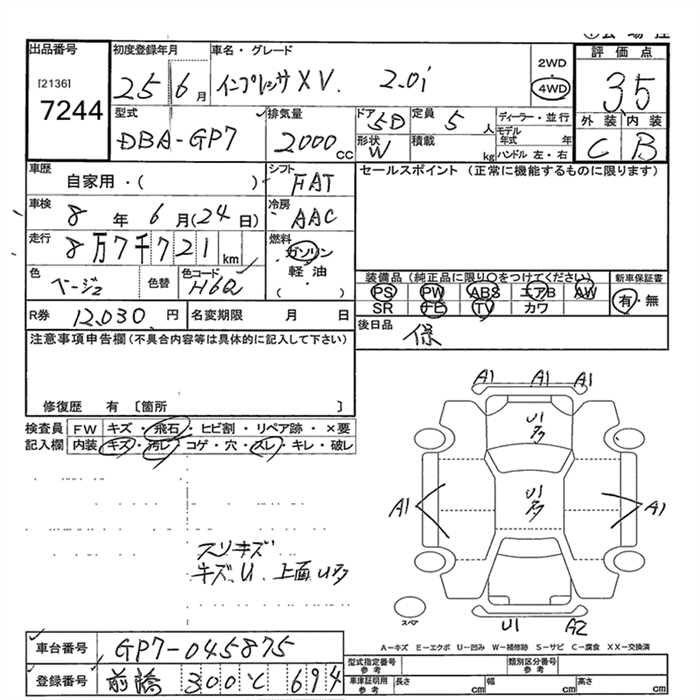 出品番号 初度登録年月 車名・グレード 2WD 評価点
[2136] 25 6月 インプレッサ XV. 2.0i 4WD 3.5
7244 型式 排気量 ドア 5D 定員 5人 ディーラー・並行 外装 内装
DBA-GP7 2000cc 形状 W 積載 kg モデル年式 年 ハンドル 左・右 C B
車歴 シフト セールスポイント (正常に機能するものに限ります)
自家用・( ) FAT
車検 8年 6月(24日) 冷房 AAC
走行 8万7千721km 燃料 ガソリン
色 色替 色コード 軽油 装備品 (純正品に限り○をつけてください) 新車保証書
ベージュ H6Q ( ) PS PW ABS エアB AW 有・無
SR FE TV カワ
R券 12,030.円 名変期限 月 日 後日品 保
注意事項申告欄 (不具合内容等は具体的に記入して下さい)
修復歴 有 〔箇所 〕
検査員 FW キズ・飛石・ヒビ割・リペア跡・×要
記入欄 内装 キズ・汚レ・コゲ・穴・スレ・キレ・破レ
A1 A1 A1
U1
多
A1 U1 A1
多
スリキズ
キズ、U. 上面U多
スペア
U1 A2
A-キズ E-エクボ U-凹み W-補修跡 S-サビ C-腐食 XX-交換済
車台番号 GP7-045875
登録番号 前橋 300 て 694
型式指定番号 参考 類別区分番号 参考
車庫証明用 参考 長さ cm 幅 cm 高さ cm